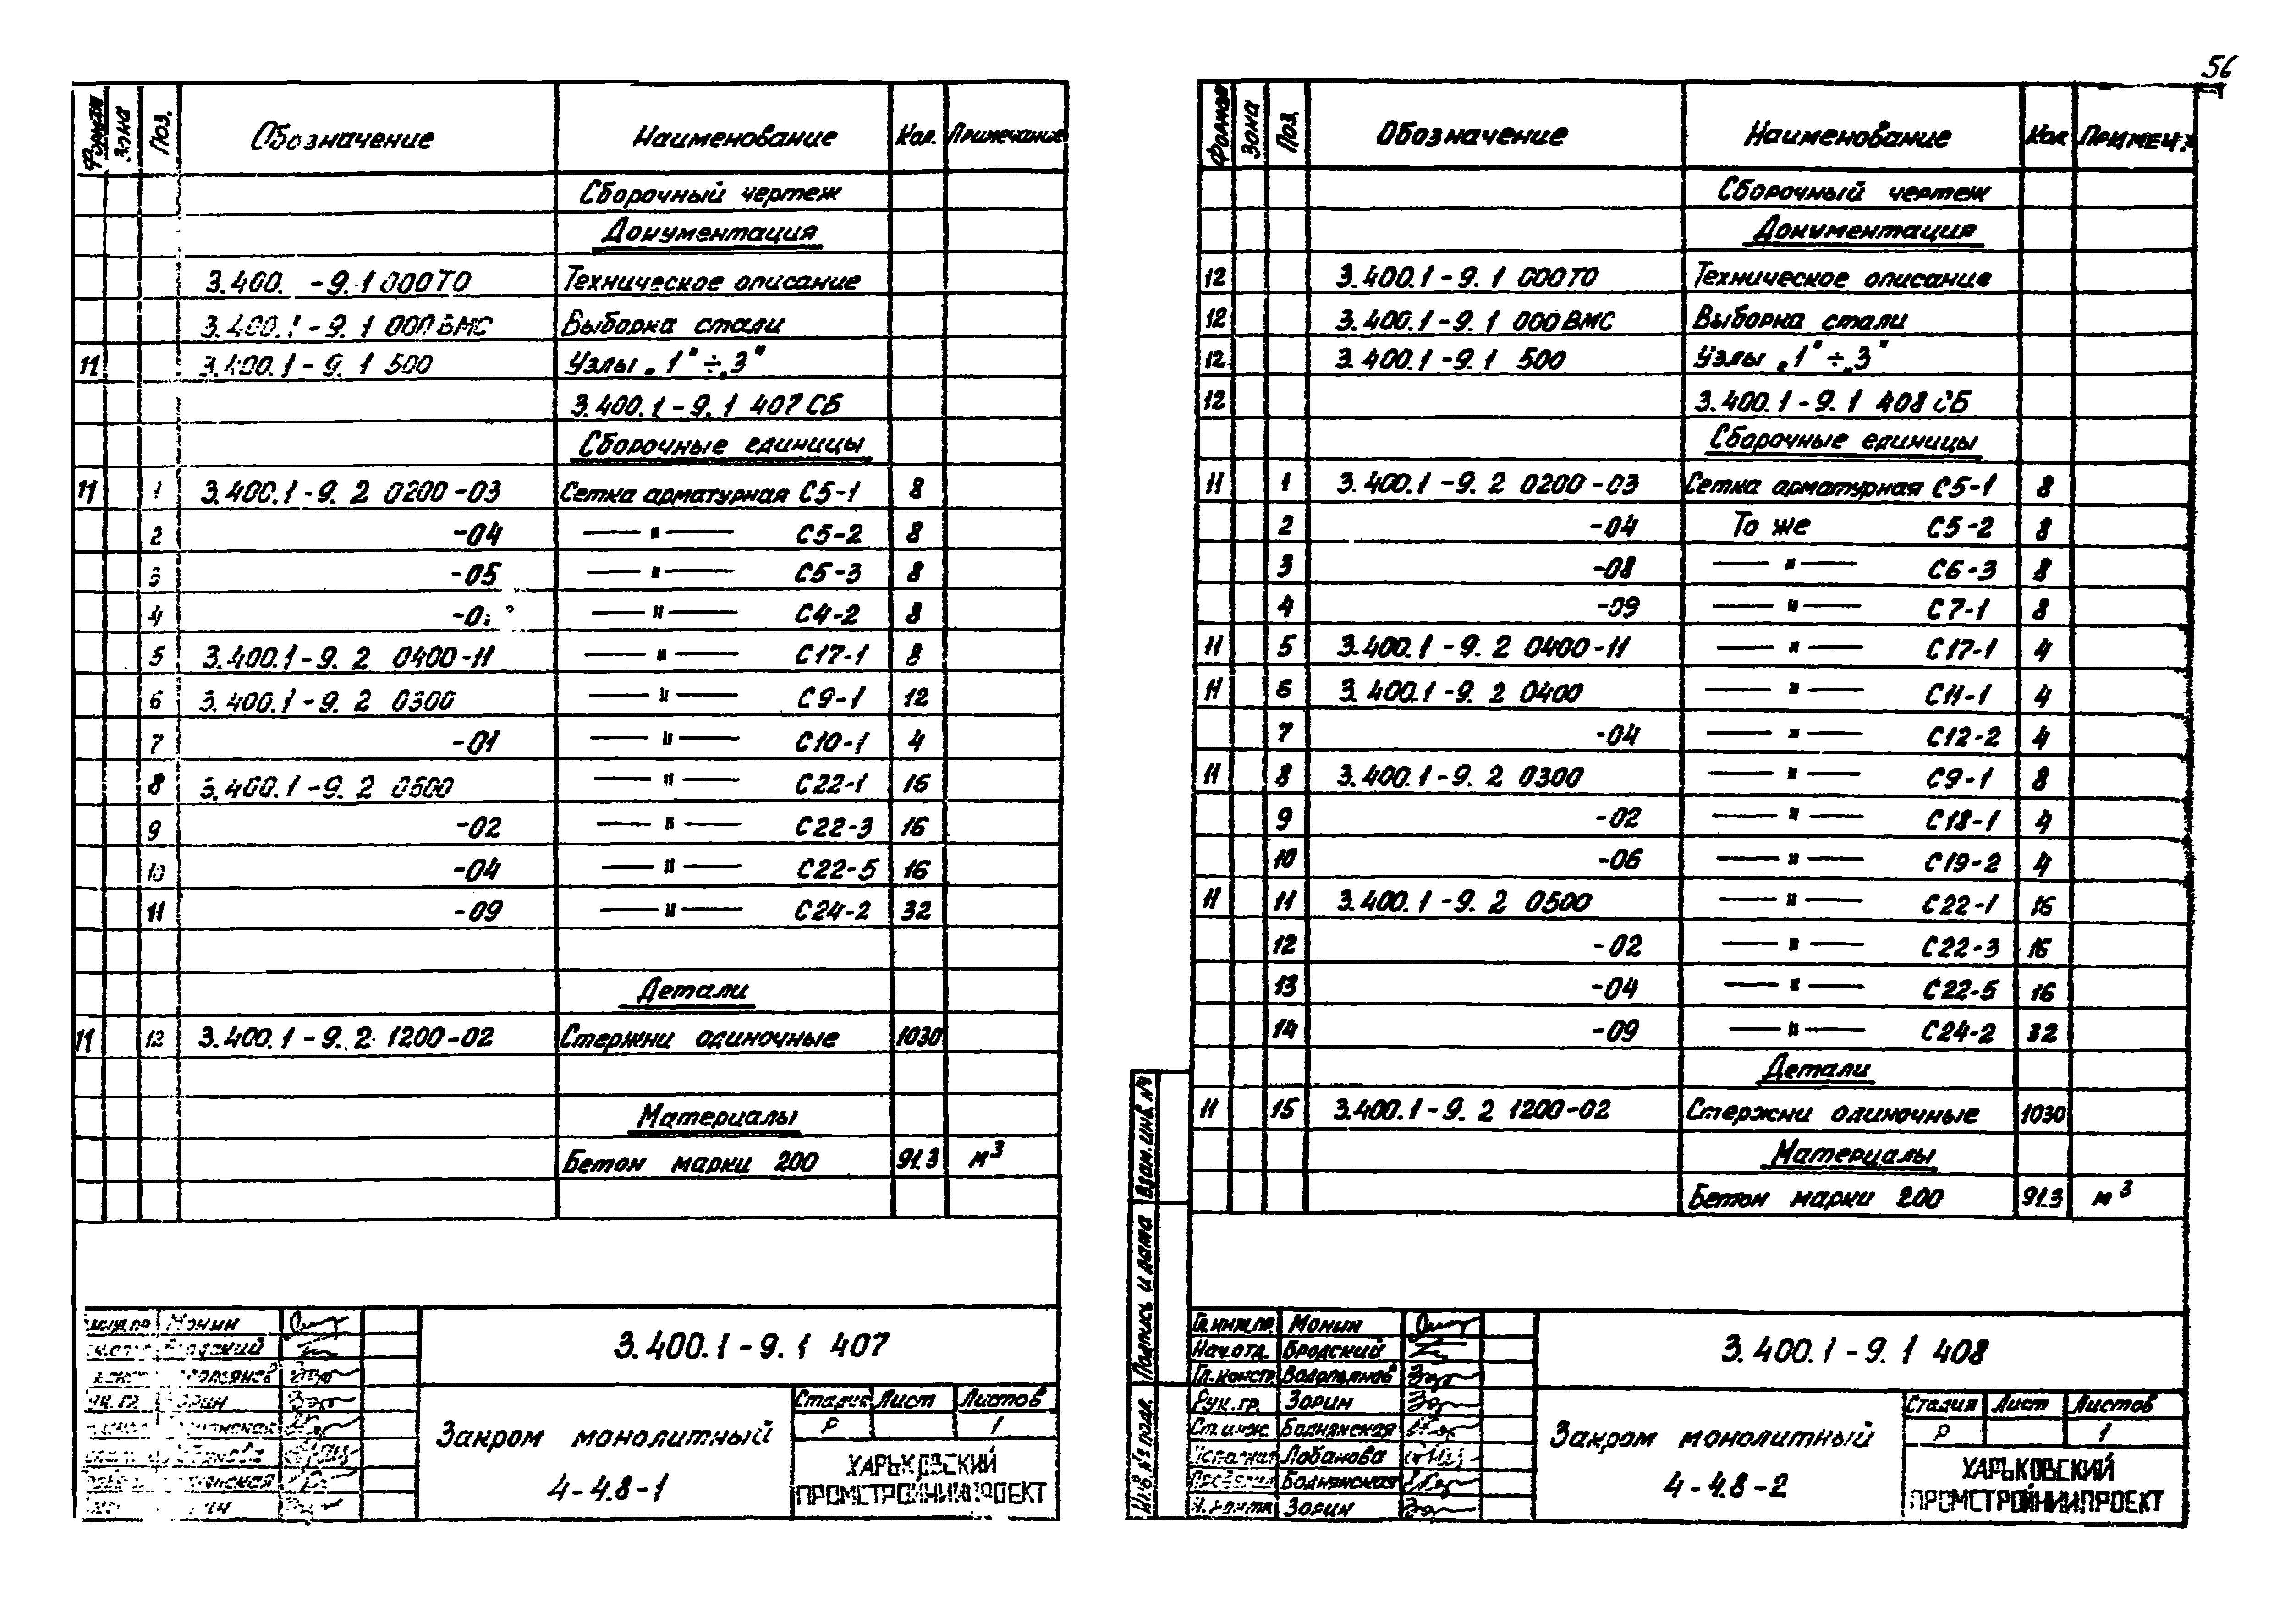 56
Формат Зона Поз. Обозначение Наименование Кол. Примечание
Сборочный чертеж
Документация
3.400. -9.1 000ТО Техническое описание
3.400.1-9.1 000ВМС Выборка стали
11 3.400.1-9.1 500 Узлы „1"÷„3"
3.400.1-9.1 407СБ
Сборочные единицы
11 1 3.400.1-9.2 0200-03 Сетка арматурная С5-1 8
2 -04 —"— С5-2 8
3 -05 —"— С5-3 8
4 —"— С4-2 8
5 3.400.1-9.2 0400-11 —"— С17-1 8
6 3.400.1-9.2 0300 —"— С9-1 12
7 -01 —"— С10-1 4
8 3.400.1-9.2 0500 —"— С22-1 16
9 -02 —"— С22-3 16
10 -04 —"— С22-5 16
11 -09 —"— С24-2 32
Детали
11 12 3.400.1-9.2 1200-02 Стержни одиночные 1030
Материалы
Бетон марки 200 91.3 м³
Монин
3.400.1-9.1 407
Закром монолитный
4-4.8-1
Стадия Лист Листов
Р 1
ХАРЬКОВСКИЙ
ПРОМСТРОЙНИИПРОЕКТ
Формат Зона Поз. Обозначение Наименование Кол. Примеч.
Сборочный чертеж
Документация
12 3.400.1-9.1 000ТО Техническое описание
12 3.400.1-9.1 000ВМС Выборка стали
12 3.400.1-9.1 500 Узлы „1"÷„3"
12 3.400.1-9.1 408СБ
Сборочные единицы
11 1 3.400.1-9.2 0200-03 Сетка арматурная С5-1 8
2 -04 То же С5-2 8
3 -08 —"— С6-3 8
4 -09 —"— С7-1 8
11 5 3.400.1-9.2 0400-11 —"— С17-1 4
11 6 3.400.1-9.2 0400 —"— С11-1 4
7 -04 —"— С12-2 4
11 8 3.400.1-9.2 0300 —"— С9-1 8
9 -02 —"— С18-1 4
10 -06 —"— С19-2 4
11 11 3.400.1-9.2 0500 —"— С22-1 16
12 -02 —"— С22-3 16
13 -04 —"— С22-5 16
14 -09 —"— С24-2 32
Детали
11 15 3.400.1-9.2 1200-02 Стержни одиночные 1030
Материалы
Бетон марки 200 91.3 м³
Взам. инв. №
Подпись и дата
Инв. № подл.
Гл. инж. пр. Монин
Нач. отд. Бродский
Гл. констр. Водопьянов
Рук. гр. Зорин
Ст. инж. Боднянская
Исполнит. Лобанова
Проверил Боднянская
Н. контр. Зорин
3.400.1-9.1 408
Закром монолитный
4-4.8-2
Стадия Лист Листов
Р 1
ХАРЬКОВСКИЙ
ПРОМСТРОЙНИИПРОЕКТ